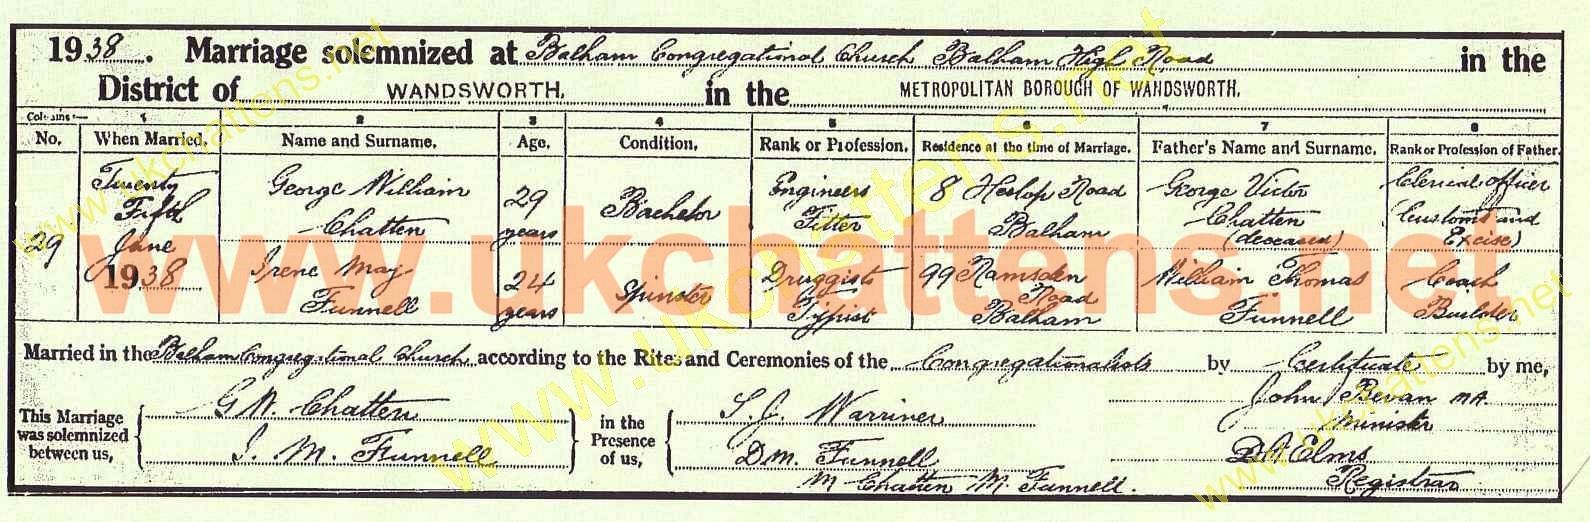 1938. Marriage solemnized at Balham Congregational Church Balham High Road in the
District of WANDSWORTH. in the METROPOLITAN BOROUGH OF WANDSWORTH.
Columns:— 1 2 3 4 5 6 7 8
No. When Married. Name and Surname. Age. Condition. Rank or Profession. Residence at the time of Marriage. Father's Name and Surname. Rank or Profession of Father.
29 Twenty Fifth June 1938 George William Chatten 29 years Bachelor Engineers Fitter 8 Heslop Road Balham George Victor Chatten (deceased) Clerical officer (Customs and Excise)
Irene May Funnell 24 years Spinster Druggists Typist 99 Ramsden Road Balham William Thomas Funnell Coach Builder
Married in the Balham Congregational Church according to the Rites and Ceremonies of the Congregationalists by Certificate by me,
This Marriage was solemnized between us,
G W Chatten
I. M. Funnell
in the Presence of us,
S. J. Warriner
D.M. Funnell
M Chatten M. Funnell.
John Bevan MA.
Minister
Elms
Registrar
www.ukchattens.net
www.ukchattens.net
www.ukchattens.net
www.ukchattens.net
www.ukchattens.net